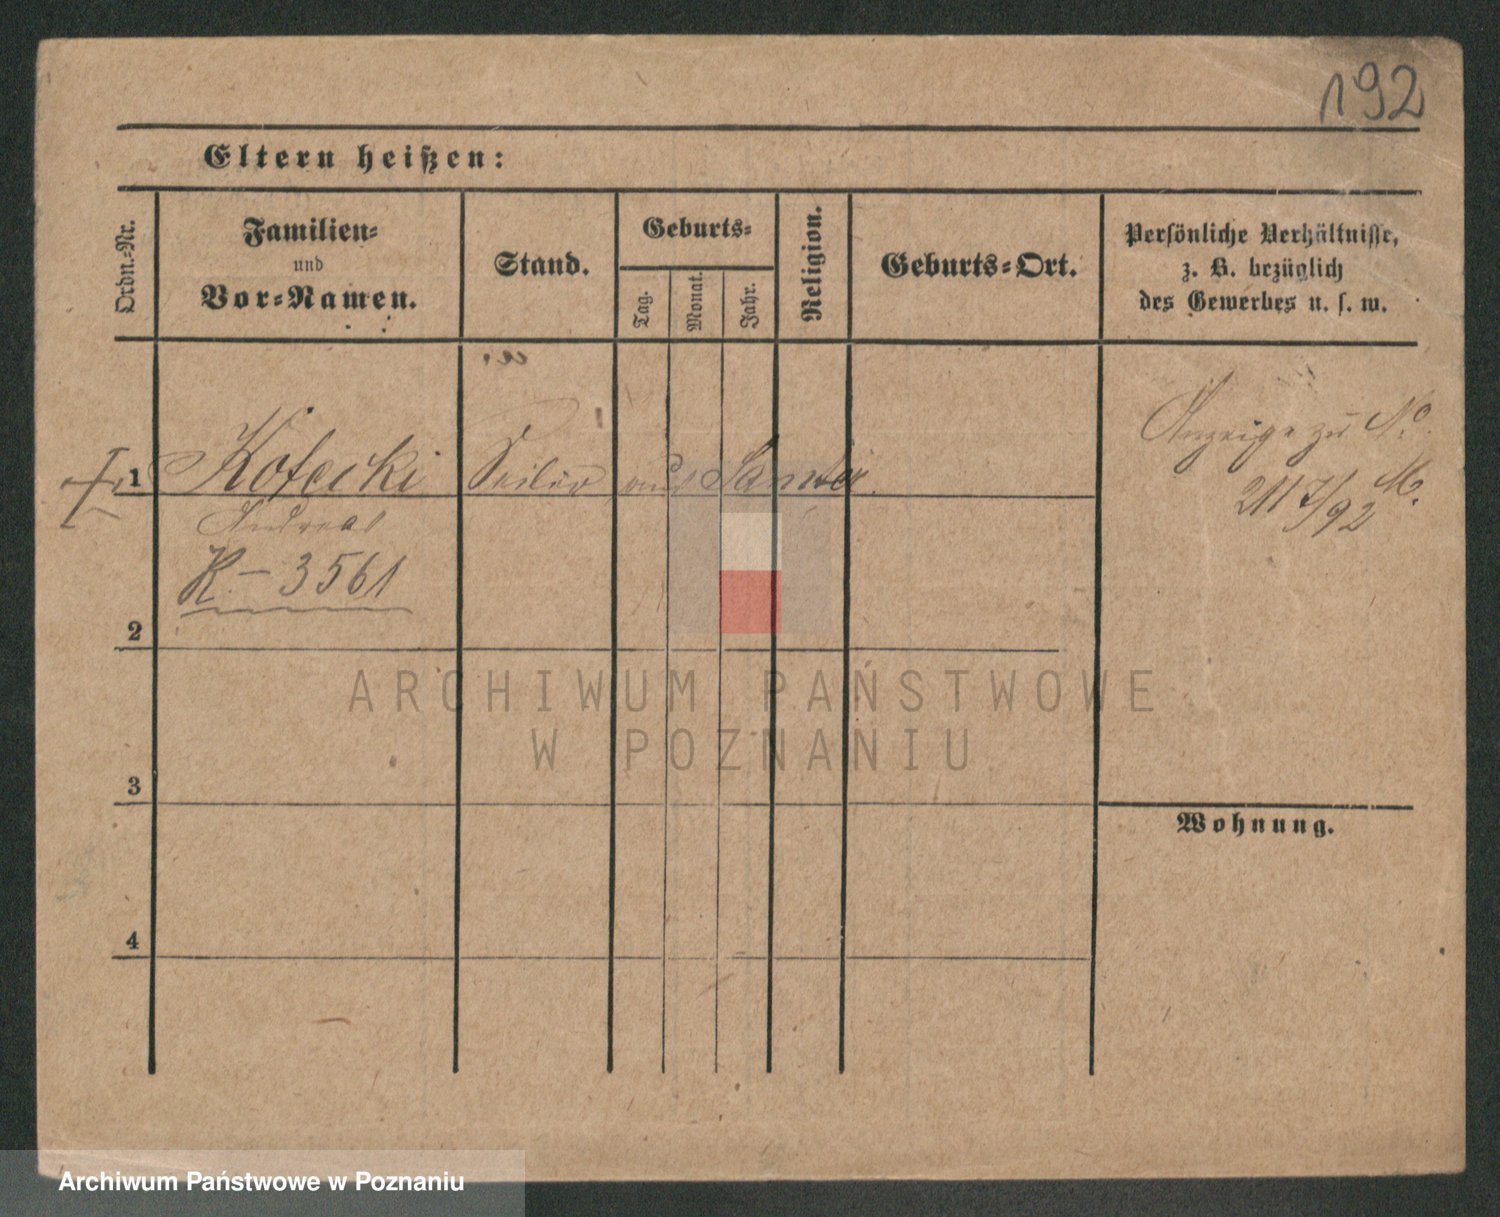 192
Eltern heißen:
Ordn.-Nr.
Familien-
und
Vor-Namen.
Stand.
Geburts-
Tag.
Monat.
Jahr.
Religion.
Geburts-Ort.
Persönliche Verhältnisse,
z. B. bezüglich
des Gewerbes u. s. w.
1 Kotecki Seiler aus Samter.
Andreas
K – 3561
Anzeige zu No.
2117/92 M.
2
3
Wohnung.
4
ARCHIWUM PAŃSTWOWE
W POZNANIU
Archiwum Państwowe w Poznaniu